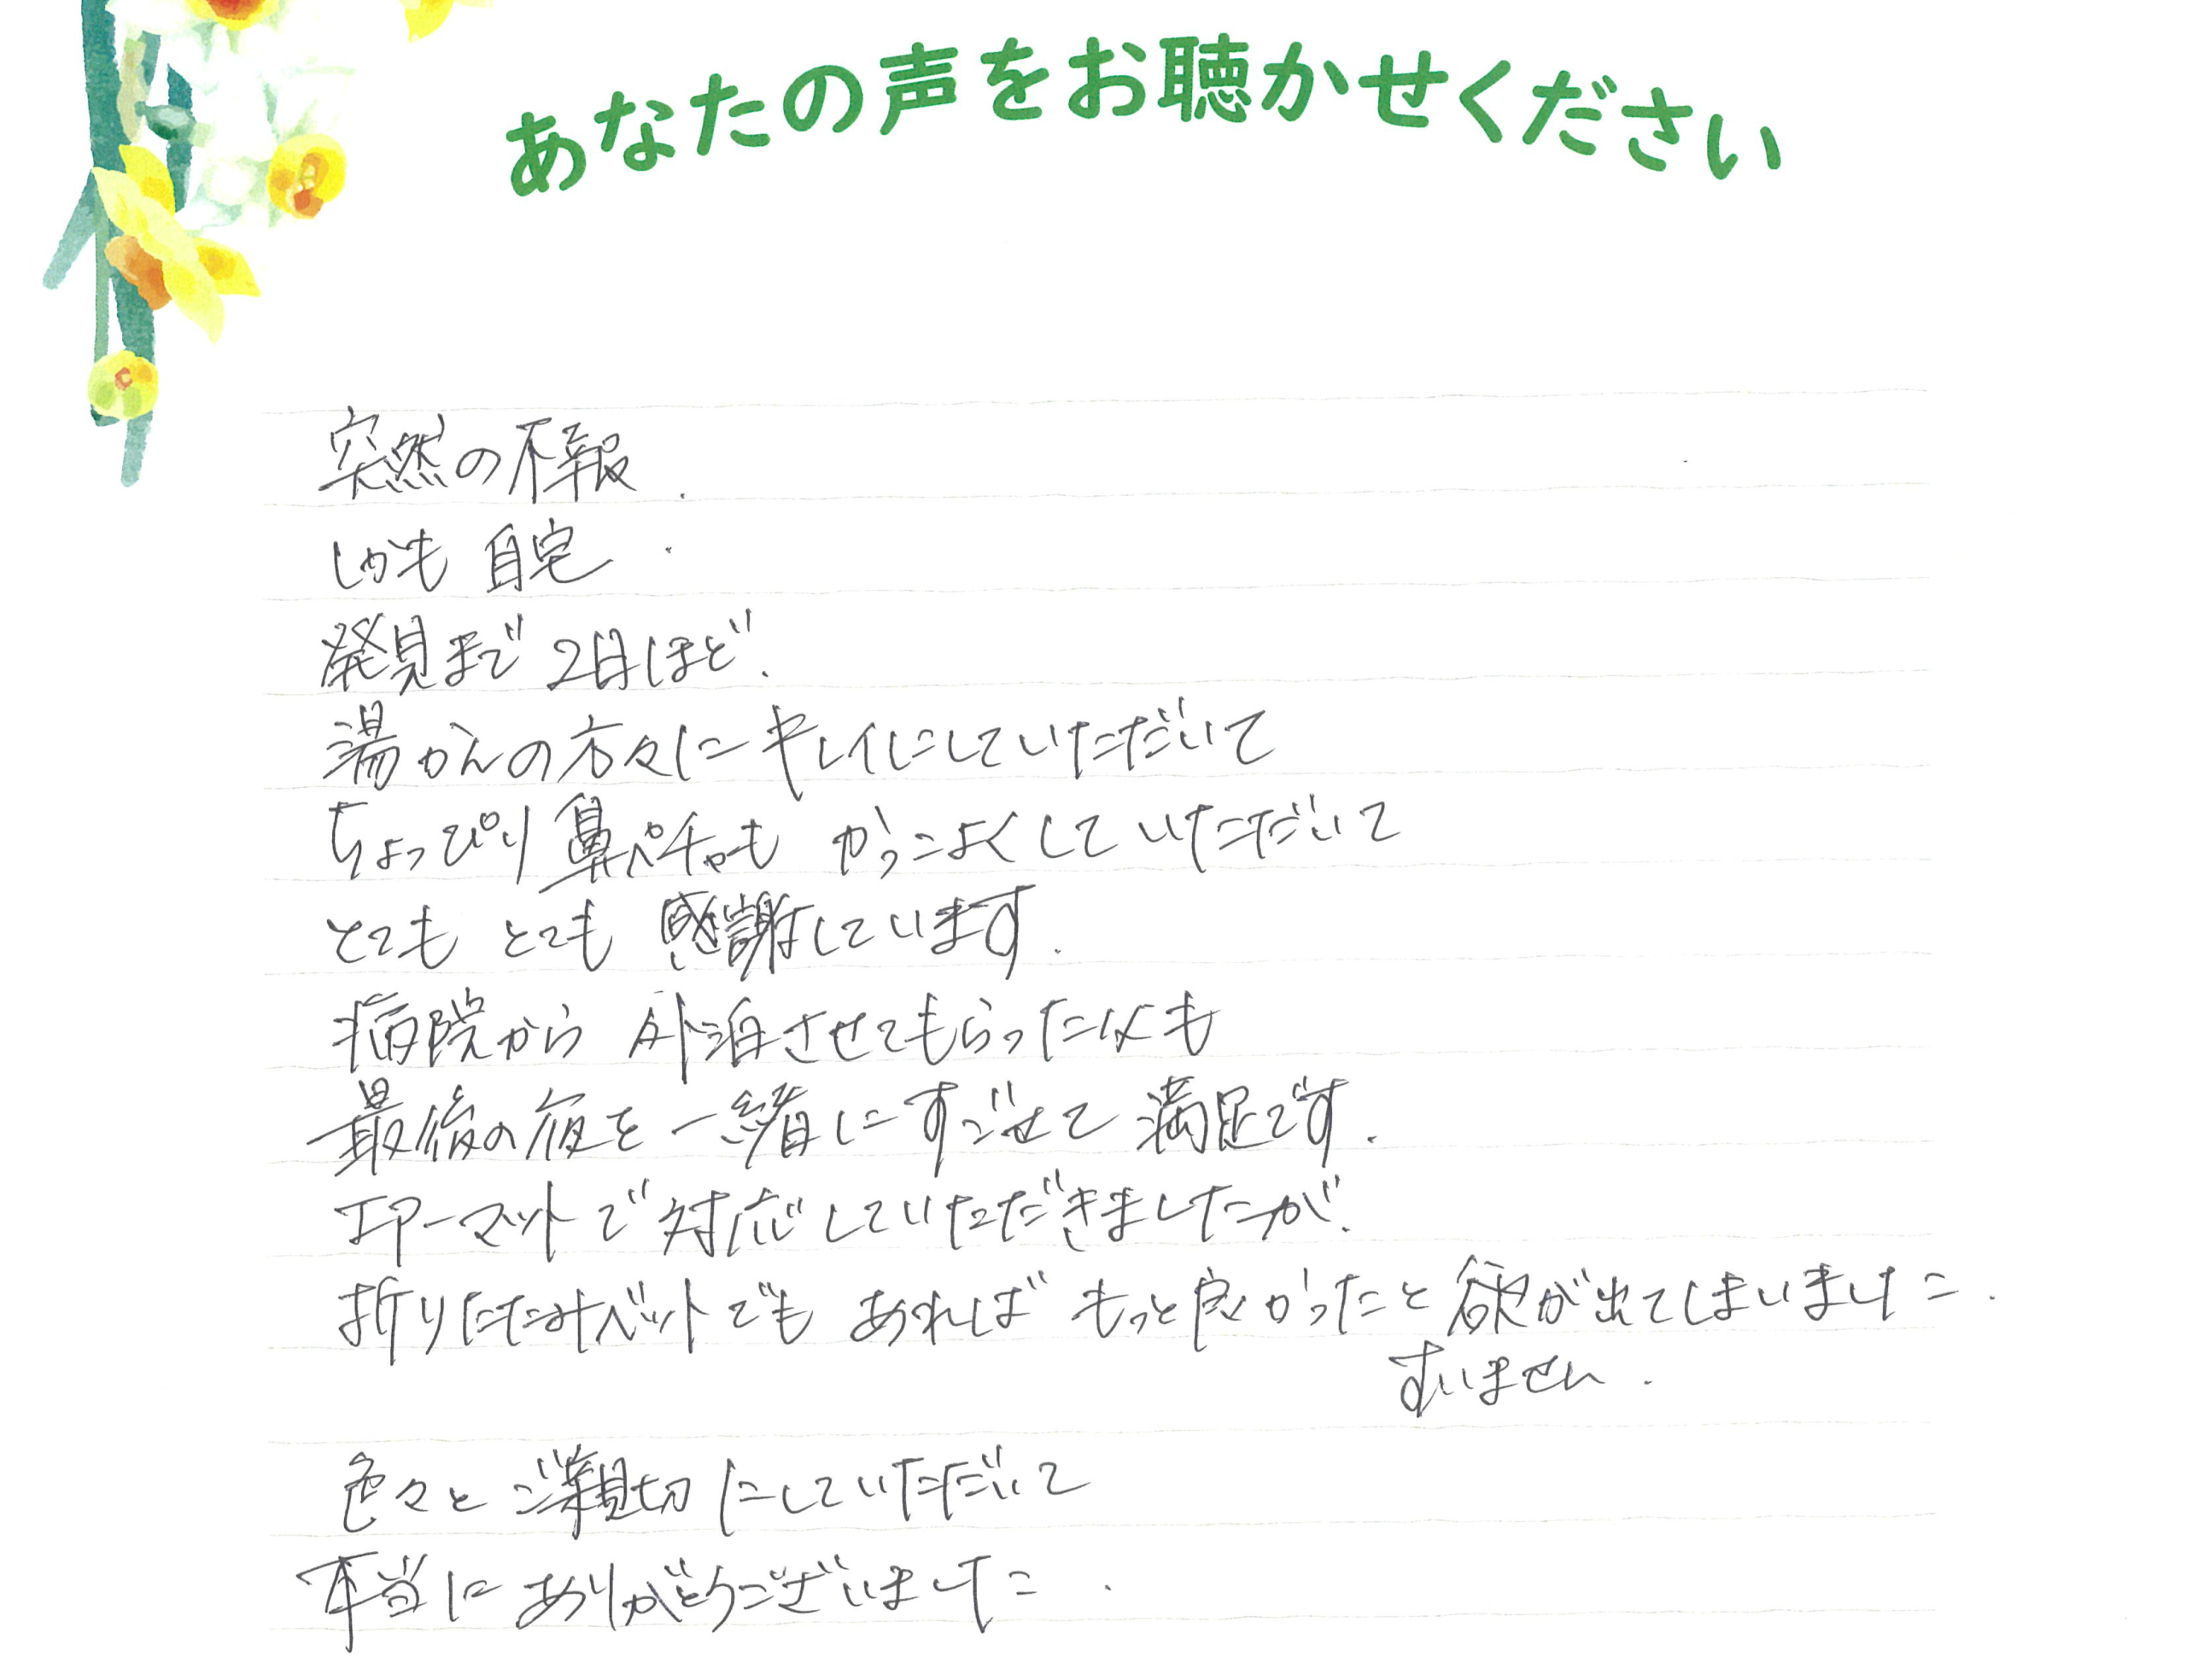 あなたの声をお聴かせください
突然の不報.
しかも 自宅.
発見まで 2日ほど.
湯かんの方々に キレイにしていただいて
ちょっぴり 鼻ペチャも かっこよくしていただいて
とても とても 感謝しています.
病院から 外泊させてもらった父も
最後の夜を 一緒にすごせて 満足です.
エアーマットで 対応していただきましたが.
折りたたみベットでも あれば もっと良かったと 欲が出てしまいました.
すいません.
色々と ご親切にしていただいて
本当に ありがとうございました.